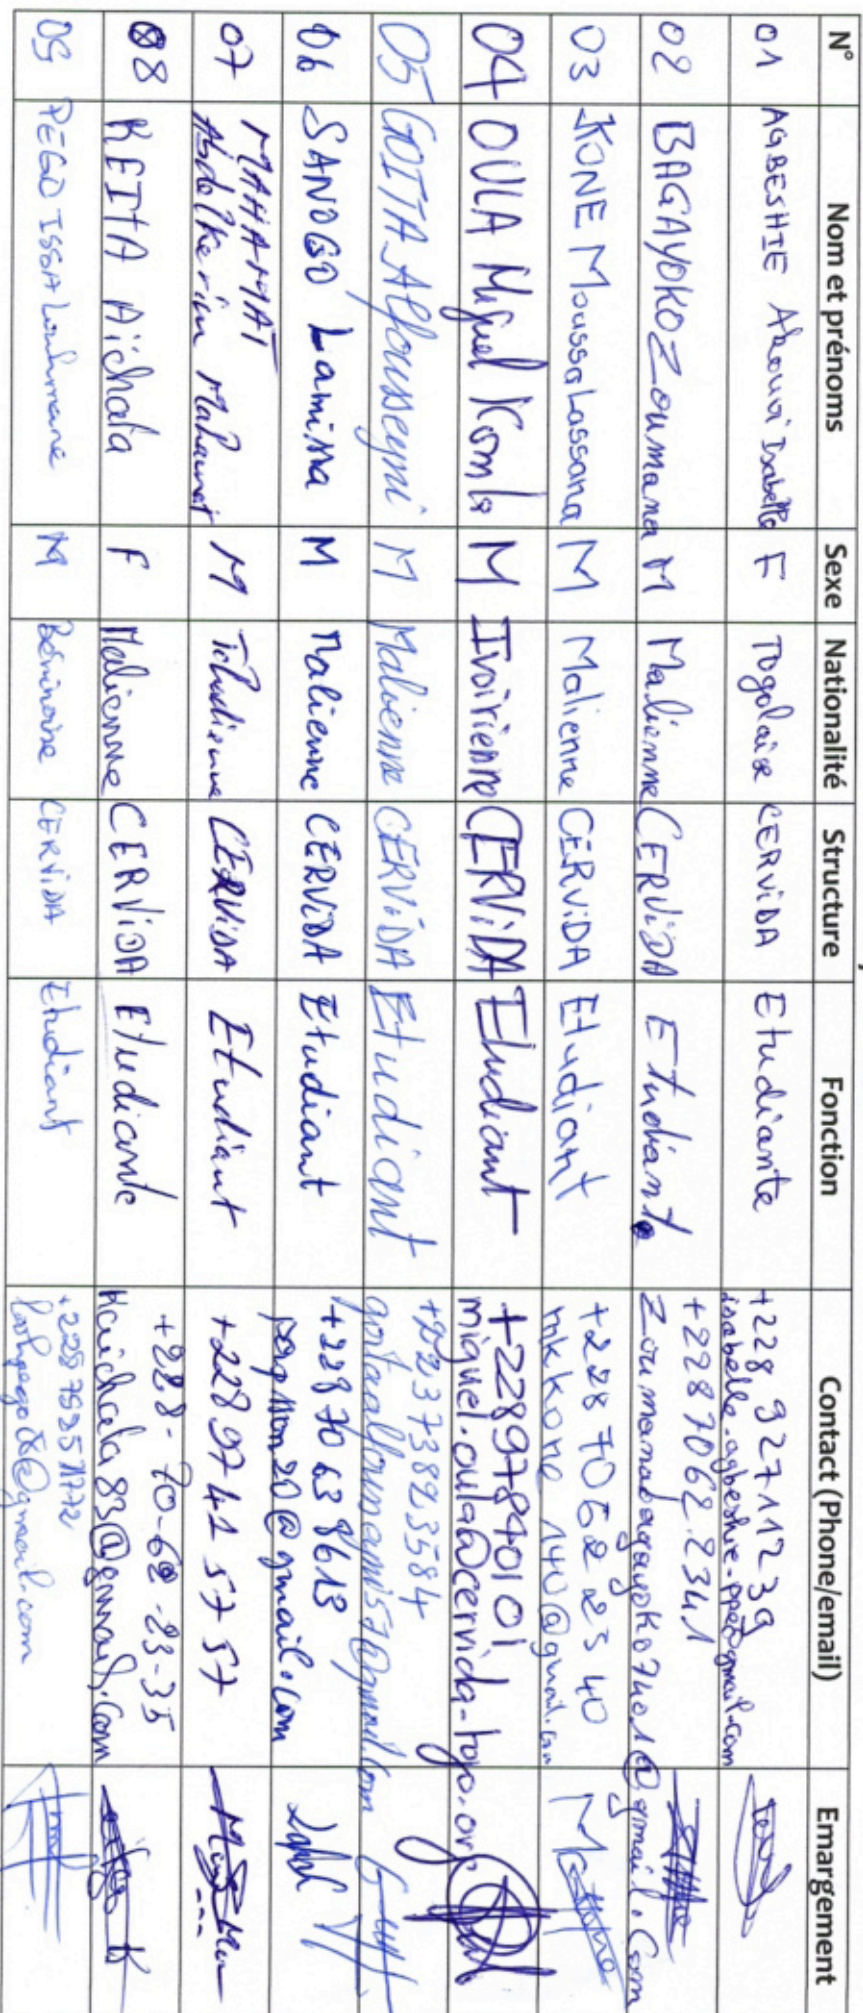 N° Nom et prénoms Sexe Nationalité Structure Fonction Contact (Phone/email) Emargement
01 AGBESHIE Akouvi Isabelle F Togolaise CERVIDA Etudiante +228 92711239
isabelle.agbeshie.ppe@gmail.com
02 BAGAYOKO Zoumana M Malienne CERVIDA Etudiant +228 7062 2341
Zoumanabagayoko7401@gmail.com
03 KONE Moussa Lassana M Malienne CERVIDA Etudiant +228 70 62 23 40
mkkone140@gmail.com
04 OULA Miguel Komla M Ivoirienne CERVIDA Etudiant +22897840101
miguel.oula@cervida-togo.org
05 GOITA Alfousseyni M Malienne CERVIDA Etudiant +22373823584
06 SANOGO Lamina M Malienne CERVIDA Etudiant +228 70 63 8613
07 MAHAMAT
Abdelkerim Mahamat M Tchadienne CERVIDA Etudiant +228 97 41 57 57
08 KEITA Aichata F Malienne CERVIDA Etudiante +228-70-62-23-35
Kaichata83@gmail.com
09 PEGO ISSA M Béninoise CERVIDA Etudiant